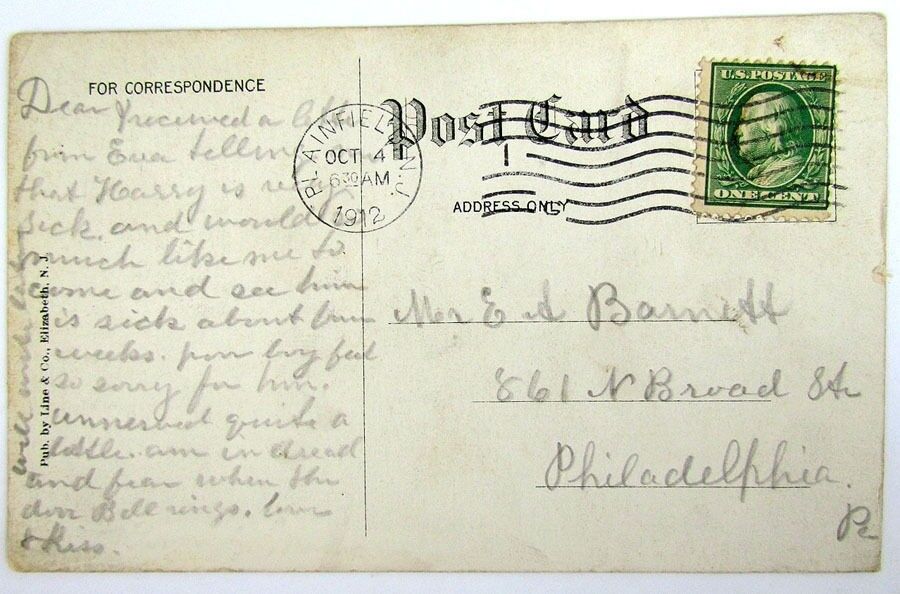 FOR CORRESPONDENCE
Post Card
ADDRESS ONLY
U.S. POSTAGE
ONE CENT
PLAINFIELD N.J.
OCT 4
630 AM
1912
Dear I received a
from Eva
that Harry is
sick. and would
much like me to
come and see him
is sick about
weeks. poor boy feel
so sorry for him.
unnerved quite a
little. am in dread
and fear when the
door Bell rings. love
& Kiss.
Pub. by Line & Co., Elizabeth, N. J.
Mr E A Barnett
861 N Broad St
Philadelphia.
Pa